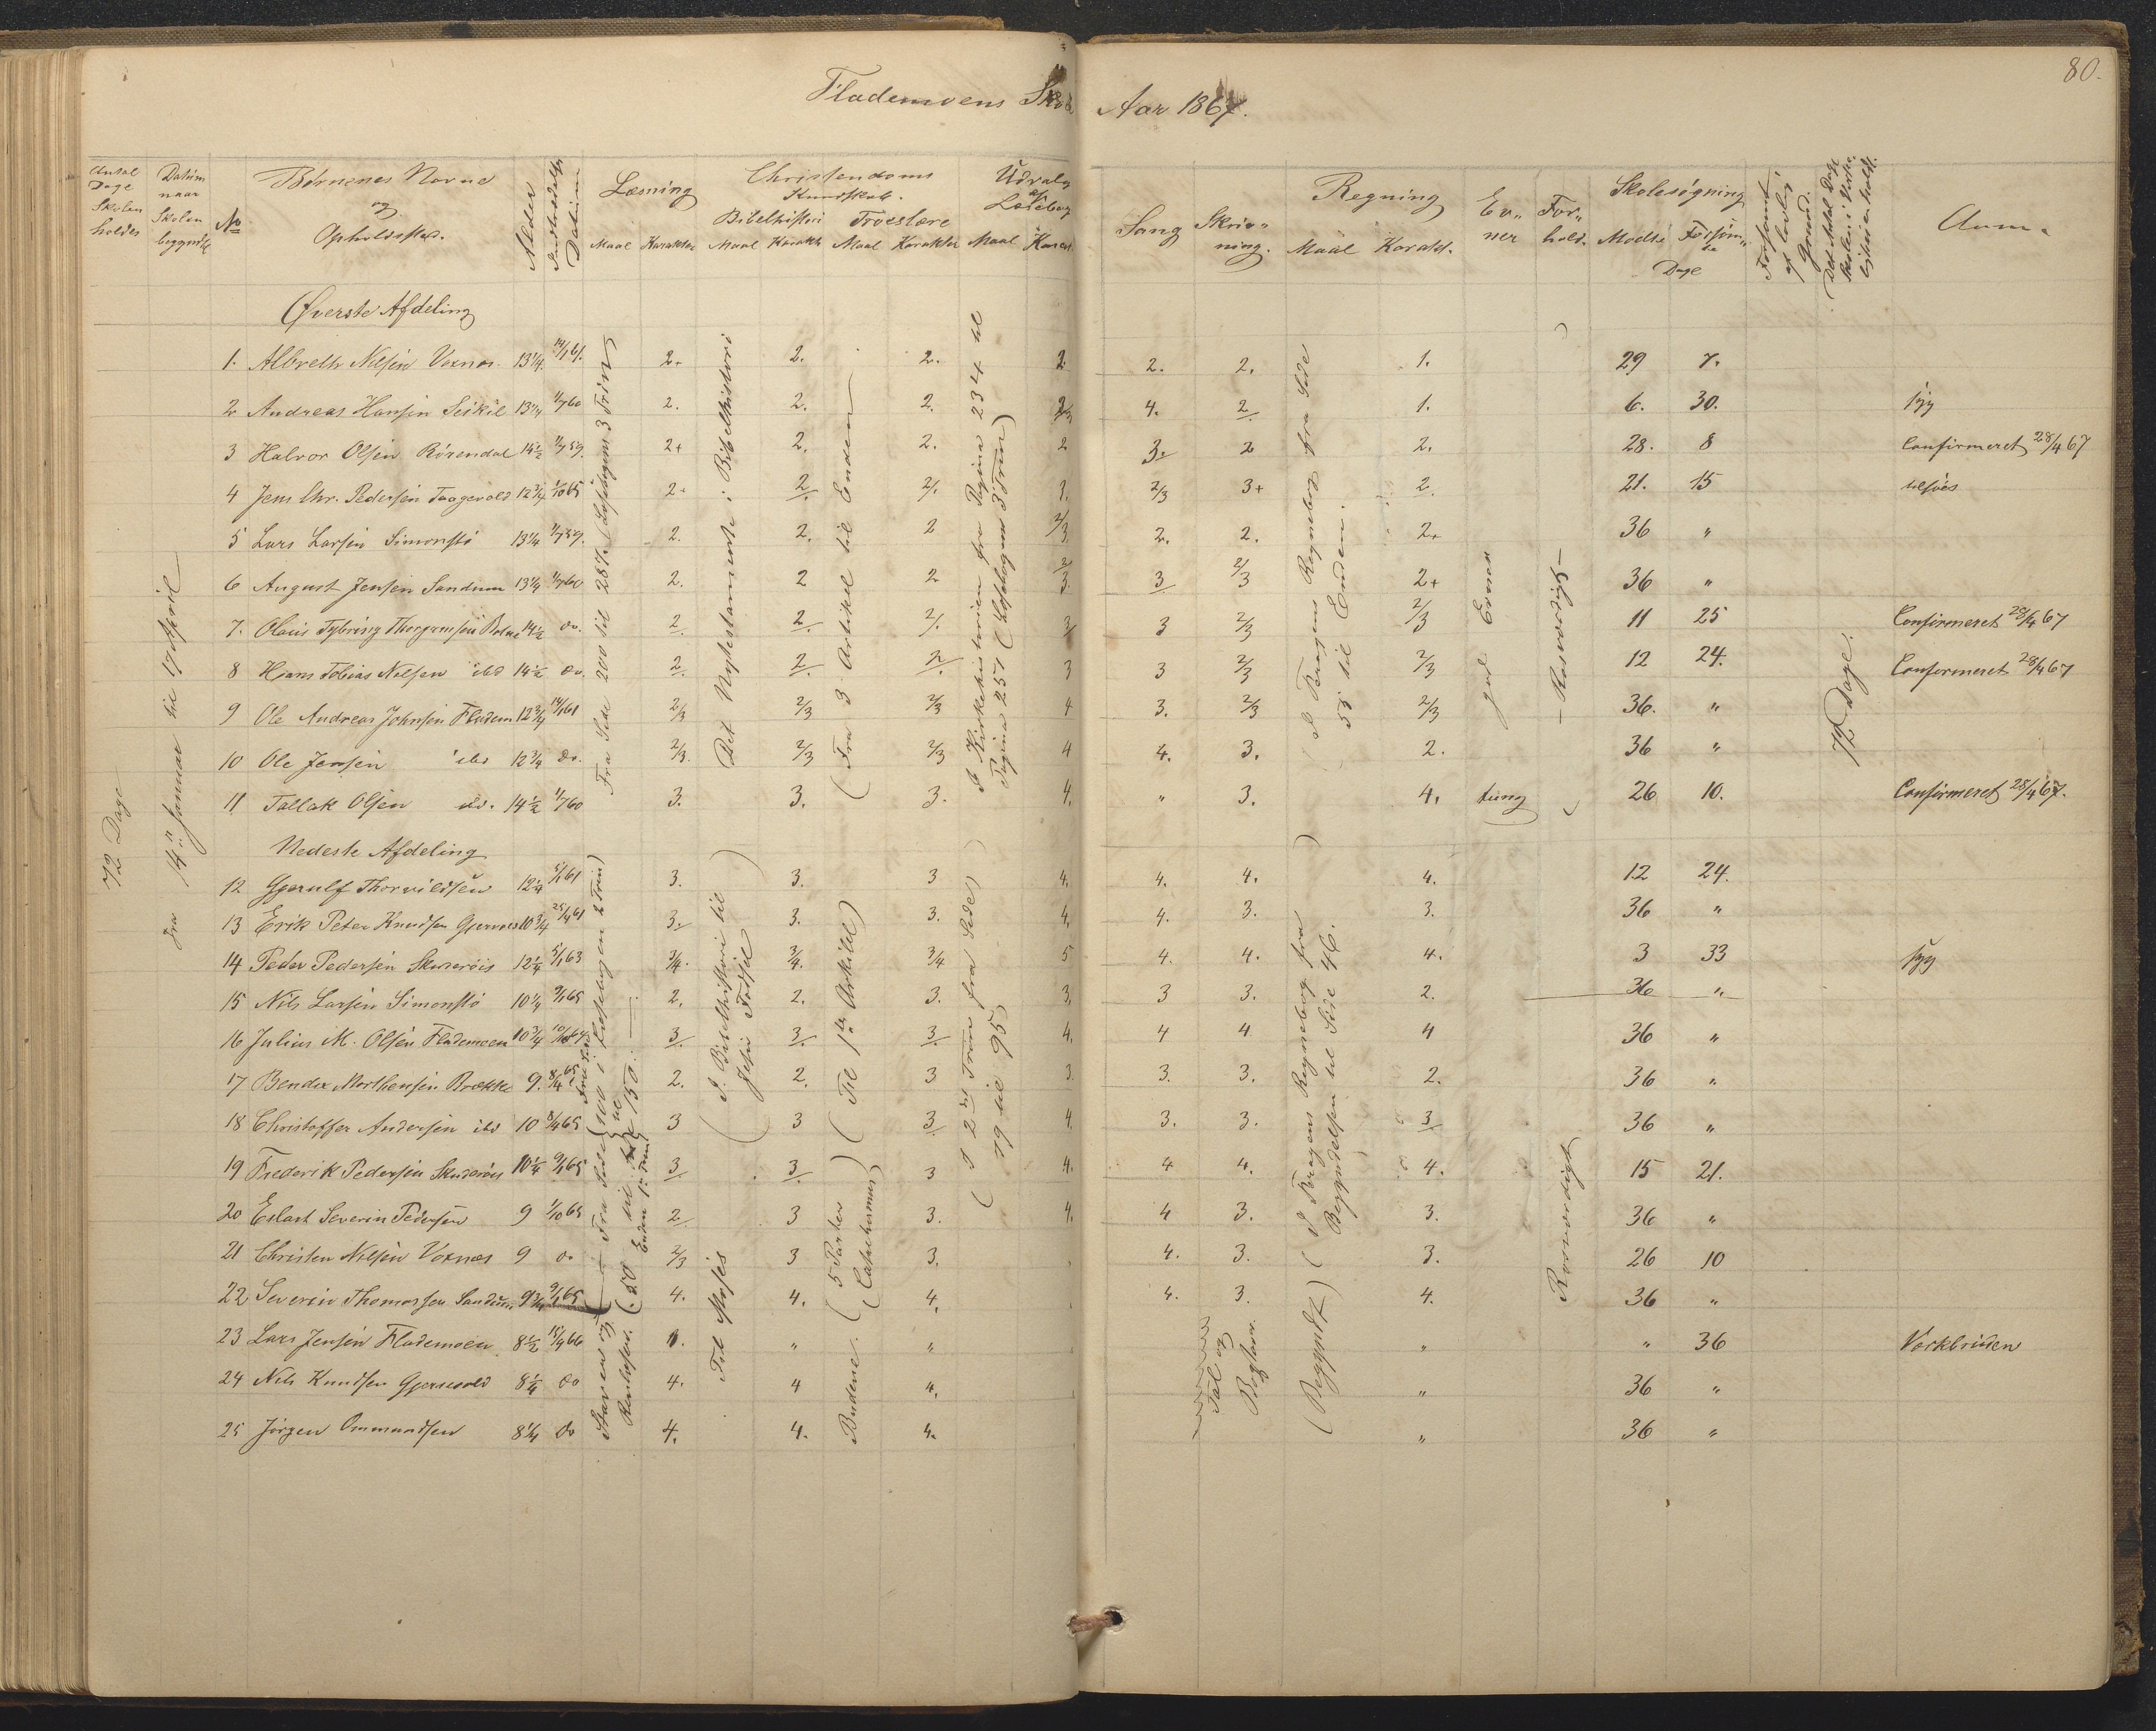 80.
Flademoens Skole Aar 1867.
Antal Dage Skolen holdes
Datum naar Skolen begyndte
No
Børnenes Navne og Opholdssted.
Alder
Indtrædelses Datum
Læsning
Maal Karakter
Christendoms Kundskab.
Bibelhistori Troeslære
Maal Karakt Maal Karakter
Udvalg af Læsebog
Maal Karakt
Sang
Skrivning.
Regning
Maal Karakt.
Evner
Forhold.
Skolesøgning
Mødte Forsømte
Dage
Forsømt af lovlig Grund.
Det Antal Dage Skolen i Virke
Anm.
72 Dage
fra 14de Januar til 17 April
Øverste Afdeling
1. Albreth Nilsen Voxnæs. 13¼ 14/1 61. 2+ 2. 2. 2. 2. 2. 1. 29 7.
2 Andreas Hansen 13¼ 1/7 60 2. 2. 2. 2/3 4. 2 1. 6. 30. syg
3 Halvor Olsen Rörendal 14½ 1/7 59. 2+ 2. 2. 2 3. 2 2. 28. 8 Confirmeret 28/4 67
4 Jens Chr. Pedersen Taagevold 12¾ 1/10 65 2+ 2 2/. 1. 2/3 3+ 2. 21. 15 tilsöes
5 Lars Larsen Simonstö 13¼ 1/7 59. 2. 2. 2 2/3 2. 2. 2+ 36 "
6 August Jensen Sandum 13¼ 1/7 60 2. 2 2 2/3 3 2/3 2+ 36 "
7. Olaus Tybring Thorgrimsen 14½ do. 2 2 2/. 3 3 2/3 2/3 11 25 Confirmeret 28/4 67
8 Hans Tobias Nilsen ibd 14½ do. 2 2 2 3 3 2/3 2/3 12 24. Confirmeret 28/4 67
9 Ole Andreas Johnsen Fladem 12¾ 14/1 61 2/3 2/3 2/3 4 3. 2/3 2/3 36. "
10 Ole Jensen ibd 12¾ do. 2/3. 2/3 2/3 4 4. 3. 2. 36 "
11 Tallak Olsen ibd. 14½ 1/7 60 3. 3. 3. 4. " 3. 4. tung 26 10. Confirmeret 28/4 67.
Fra Side 200 til 287. Læsebogens 3 Trin
Det Nytestamente i Bibelhistorie
(Fra 3 Artikel til Enden
I Kirkehistorien fra Pagina 234 til Pagina 257 (Læsebogens 3 Trin)
(I Faragens Regnebog fra Side 55 til Enden.
god Evner
Rosværdigt
72 Dage.
Nedeste Afdeling
12 Gjerulf Thorvildsen 12¼ 5/1 61 3. 3. 3 4. 4. 4. 4. 12 24.
13 Erik Peter Knudsen 10¾ 25/4 61 3. 3. 3. 4. 4. 3. 3. 36 "
14 Peder Pedersen Skuderöis 12¼ 5/1 63 3/4. 3/4. 3/4 5 4. 4. 4. 3 33 syg
15 Nils Larsen Simonstö 10¼ 9/1 65 2. 2. 3. 3. 3 3. 2. 36 "
16 Julius M. Olsen Flademoen 10¾ 10/10 64 3. 3. 3. 4. 4 4 4 36 "
17 Bendix Morthensen Brække 9. 8/4 65 2. 2. 3 3. 3. 3. 2. 36 "
18 Christoffer Andersen ibd 10 8/4 65 3 3 3 4. 3. 3. 3 36 "
19 Frederik Pedersen Skuderöis 10¼ 9/1 65 3 3 3 4. 4 4. 4. 15 21.
20 Eilart Severin Pedersen 9 1/10 65 2 3 3. 4. 4 3. 3. 36 "
21 Christen Nilsen Voxnæs 9 do 2/3 3 3. 4. 3. 3. 26 10
22 Severin Thomassen Sandum 9¾ 9/1 65 4. 4. 4. 4. 3. 4. 36 "
23 Lars Jensen Flademoen 8½ 15/4 66 " " " " 36 Værkbruden
24 Nils Knudsen 8¼ do 4. 4 4. " 36 "
25 Jörgen Ommundsen 8¼ do 4. 4. 4. " 36 "
Fra Side 100 i Læsebogen 2 Trin)
(I. Bibelhistori til Jesu Fødsel
(Til 1ste Artikel)
(I 2det Trin fra Side 79 til 95)
(I Faragens Regnebog fra Begyndelsen til Side 46.
Roesværdigt
Til Moses
Budene. (5 Parter Catechismus)
Tal og Bogstaver.
(Begyndt)